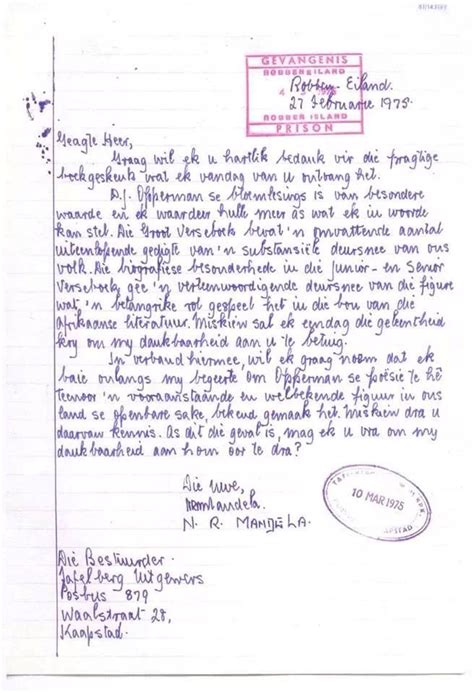 GEVANGENIS
ROBBENEILAND
4 1975
ROBBEN ISLAND
PRISON
Robben-Eiland.
27 Februarie 1975.
Geagte Heer,
Graag wil ek u hartlik bedank vir die pragtige
boekgeskenk wat ek vandag van u ontvang het.
D.J. Opperman se bloemlesings is van besondere
waarde en ek waardeer hulle meer as wat ek in woorde
kan stel. Die Groot Verseboek bevat 'n omvattende aantal
uiteenlopende gedigte van 'n substansiële deursnee van ons
volk. Die biografiese besonderhede in die Junior- en Senior
Verseboek gee 'n verteenwoordigende deursnee van die figure
wat 'n belangrike rol gespeel het in die bou van die
Afrikaanse literatuur. Miskien sal ek eendag die geleentheid
kry om my dankbaarheid aan u te betuig.
In verband hiermee, wil ek graag noem dat ek
baie onlangs my begeerte om Opperman se poësie te hê
teenoor 'n vooraanstaande en welbekende figuur in ons
land se openbare sake, bekend gemaak het. Miskien dra u
daarvan kennis. As dit die geval is, mag ek u vra om my
dankbaarheid aan hom oor te dra?
Die Uwe,
NRMandela.
N. R. MANDELA.
10 MAR 1975
Die Bestuurder.
Tafelberg Uitgewers
Posbus 879
Waalstraat 28,
Kaapstad.